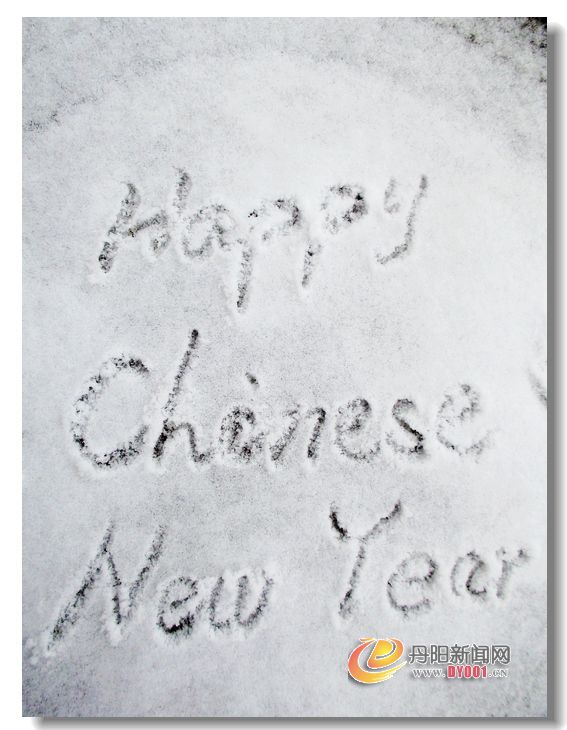 Happy
Chinese
New Year
丹阳新闻网
WWW.DY001.CN